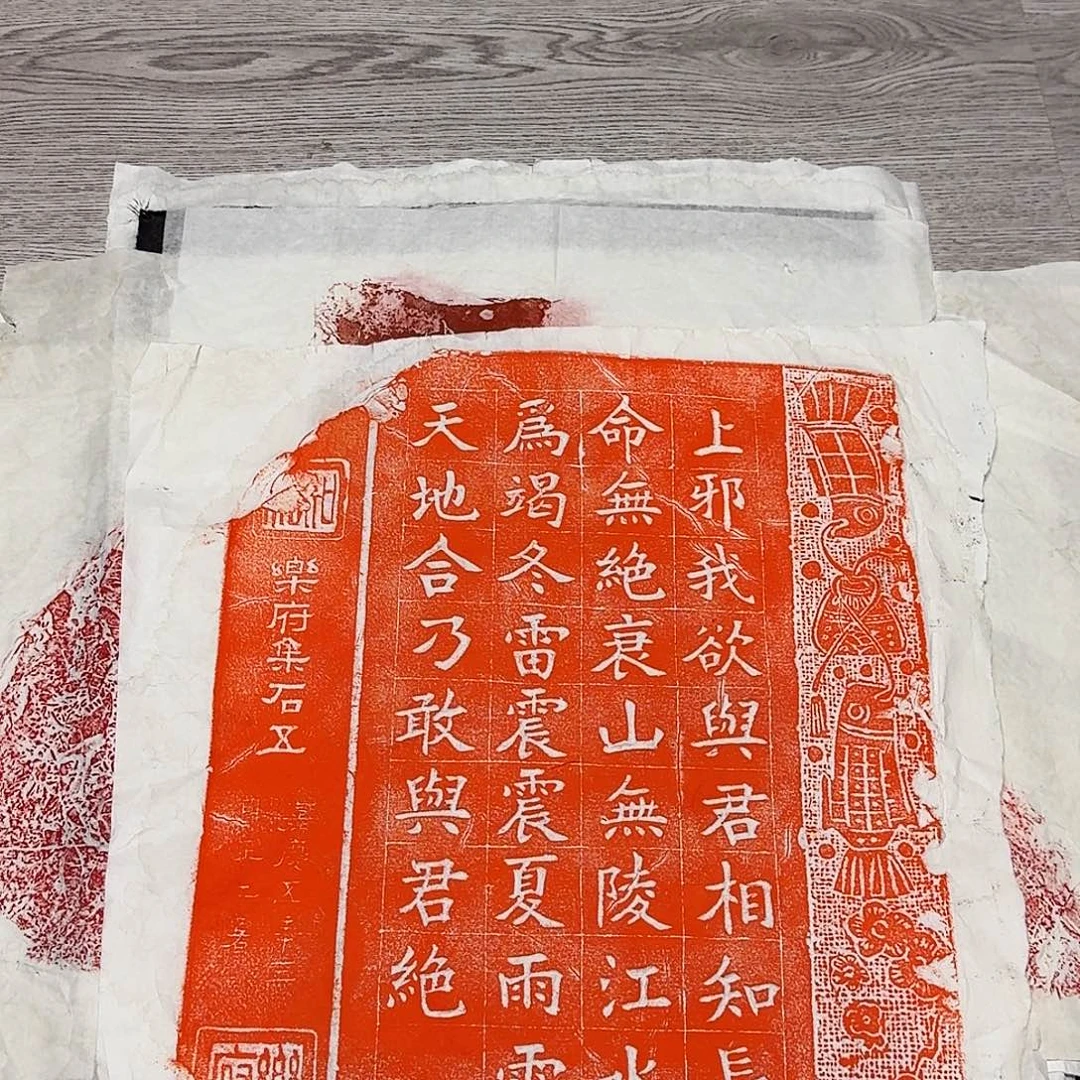 上邪我欲與君相知長
命無絶衰山無陵江水
爲竭冬雷震震夏雨
天地合乃敢與君絶
樂府集石五